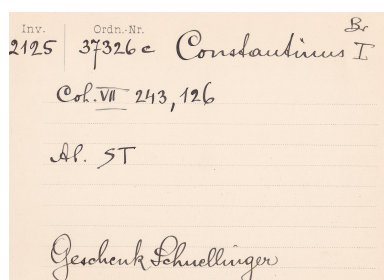 Br
Inv. Ordn.-Nr.
2125 37326c Constantinus I
Coh. VII 243, 126
Al. ST
Geschenk Schnellinger